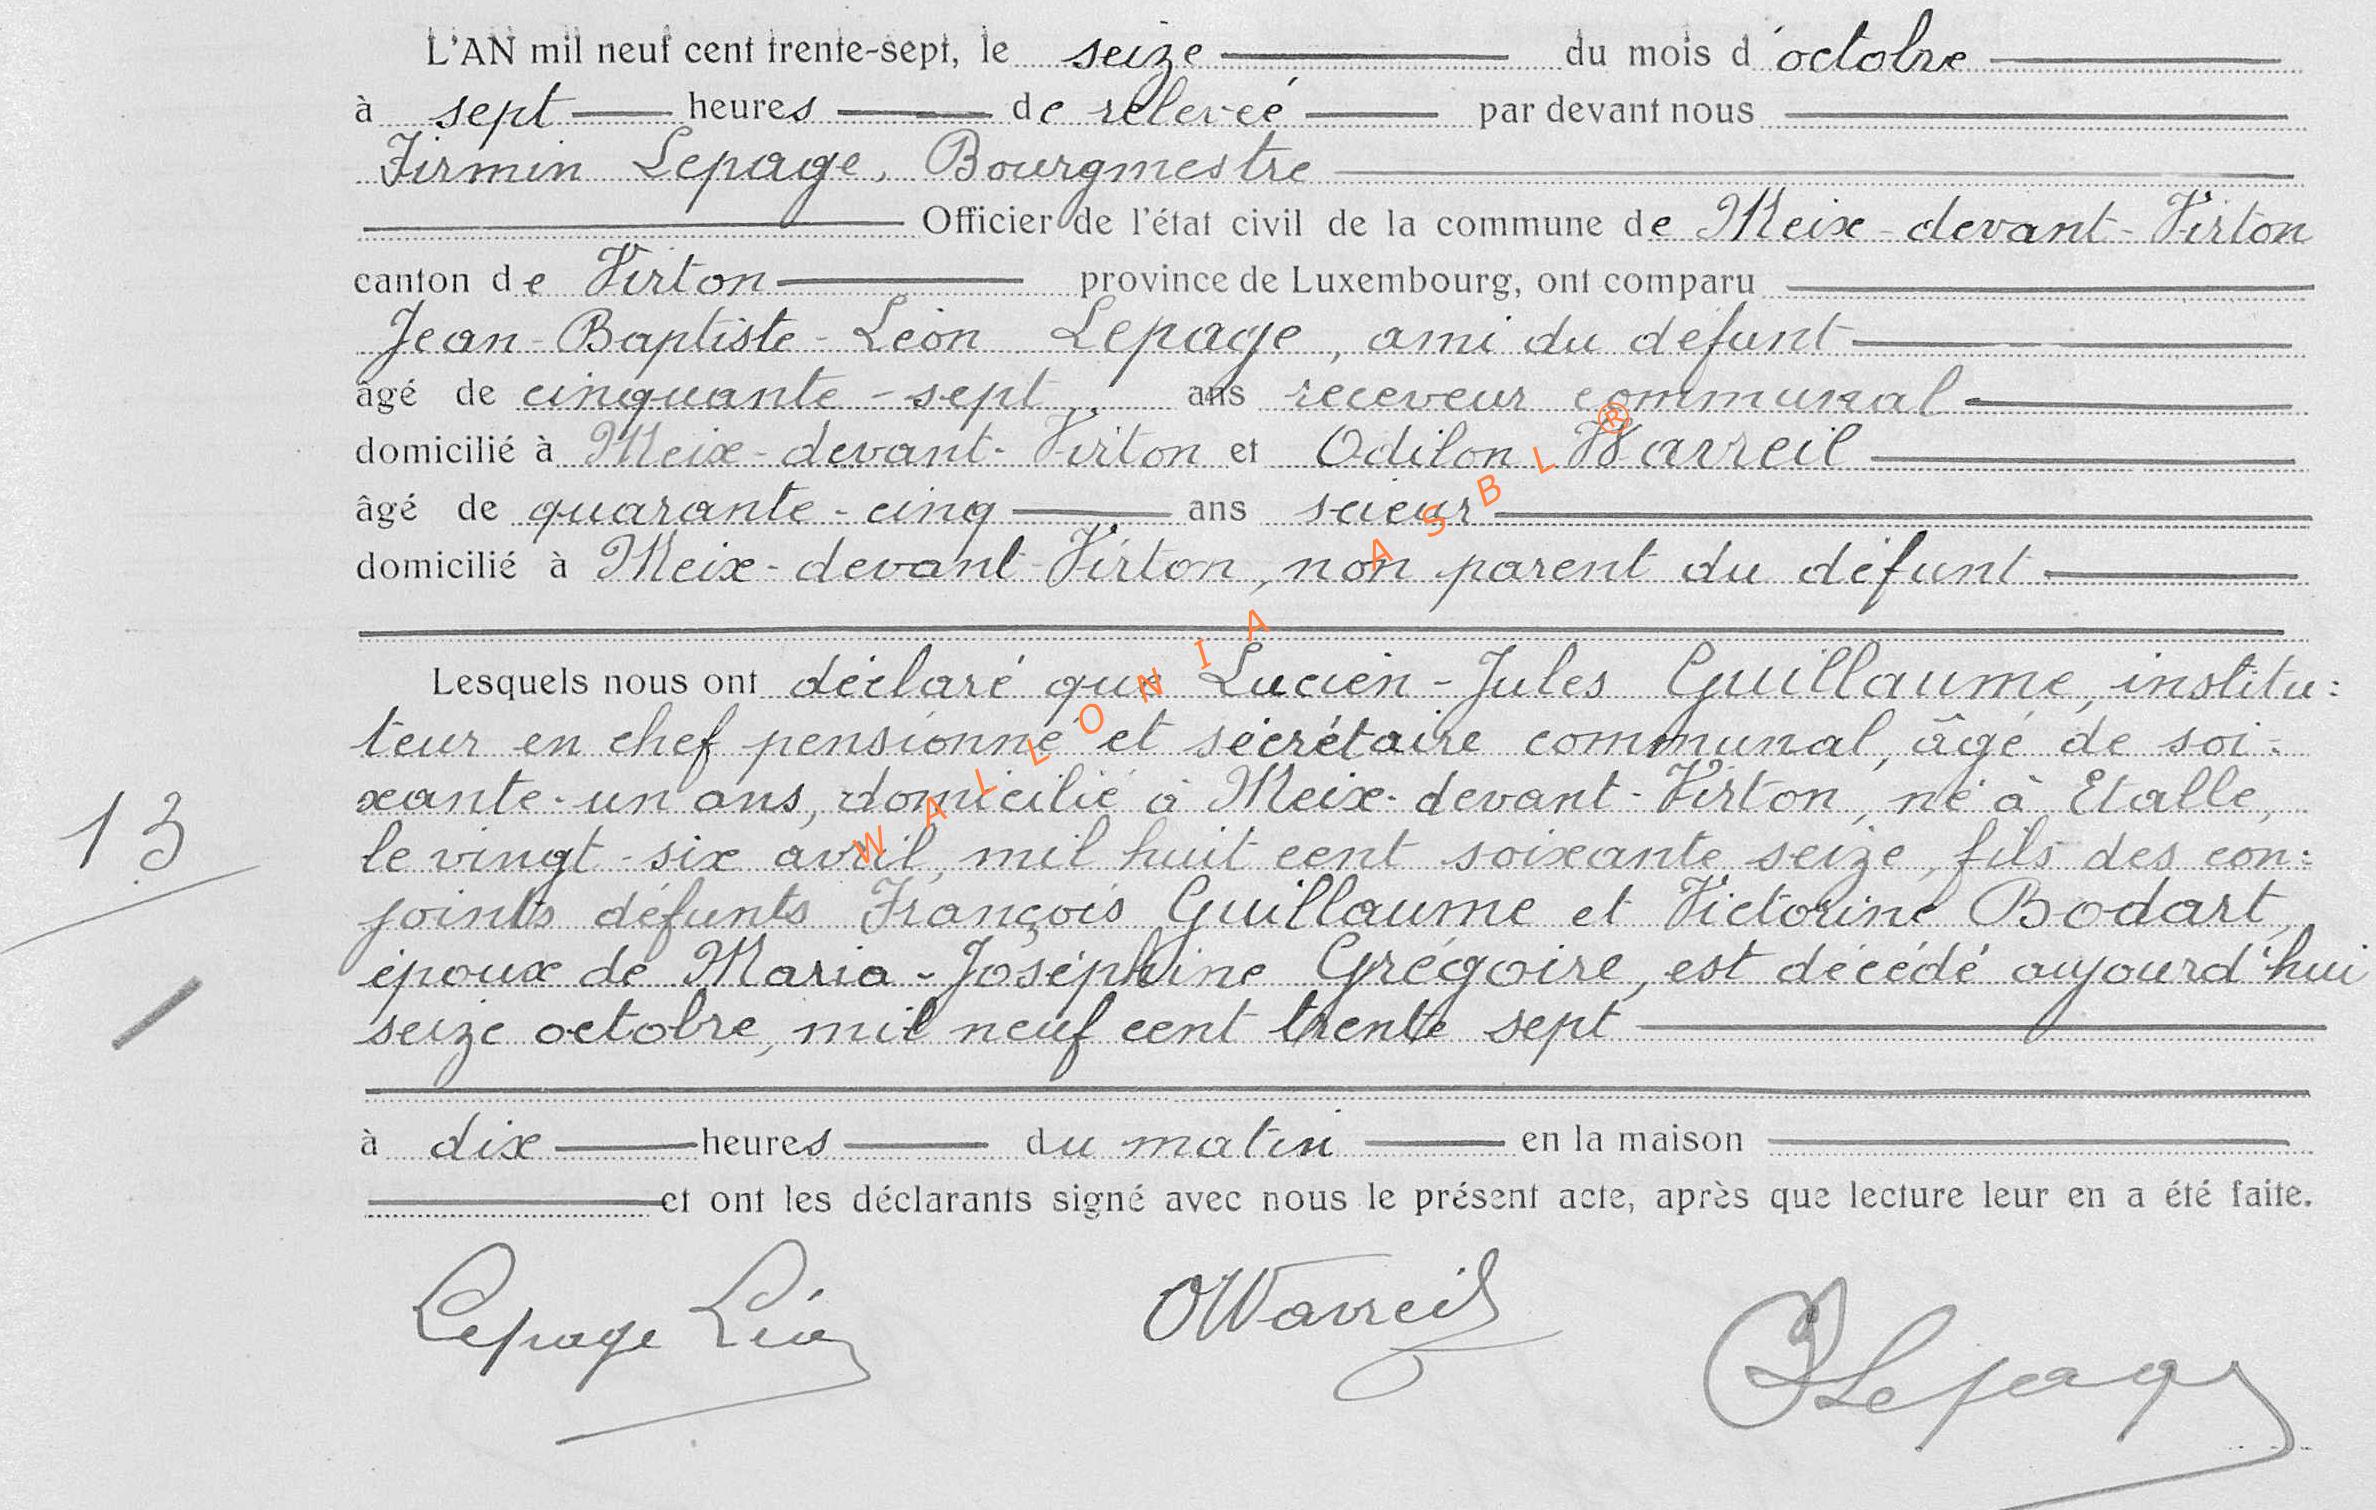 L'AN mil neuf cent trente-sept, le seize du mois d'octobre
à sept heures de relevée par devant nous
Firmin Lepage, Bourgmestre
Officier de l'état civil de la commune de Meix-devant-Virton
canton de Virton province de Luxembourg, ont comparu
Jean-Baptiste-Léon Lepage, ami du défunt
âgé de cinquante-sept ans receveur communal
domicilié à Meix-devant-Virton et Odilon Warreil
âgé de quarante-cinq ans scieur
domicilié à Meix-devant-Virton, non parent du défunt
Lesquels nous ont déclaré que Lucien-Jules Guillaume, institu:
teur en chef pensionné et secrétaire communal, âgé de soi-
xante-un ans, domicilié à Meix-devant-Virton, né à Etalle,
13
le vingt-six avril, mil huit cent soixante seize, fils des con:
joints défunts François Guillaume et Victorine Bodart,
époux de Maria-Joséphine Grégoire, est décédé aujourd'hui
seize octobre, mil neuf cent trente sept
à dix heures du matin en la maison
et ont les déclarants signé avec nous le présent acte, après que lecture leur en a été faite.
Lepage Léon OWarreil FLepage
WALLONIA ASBL ®